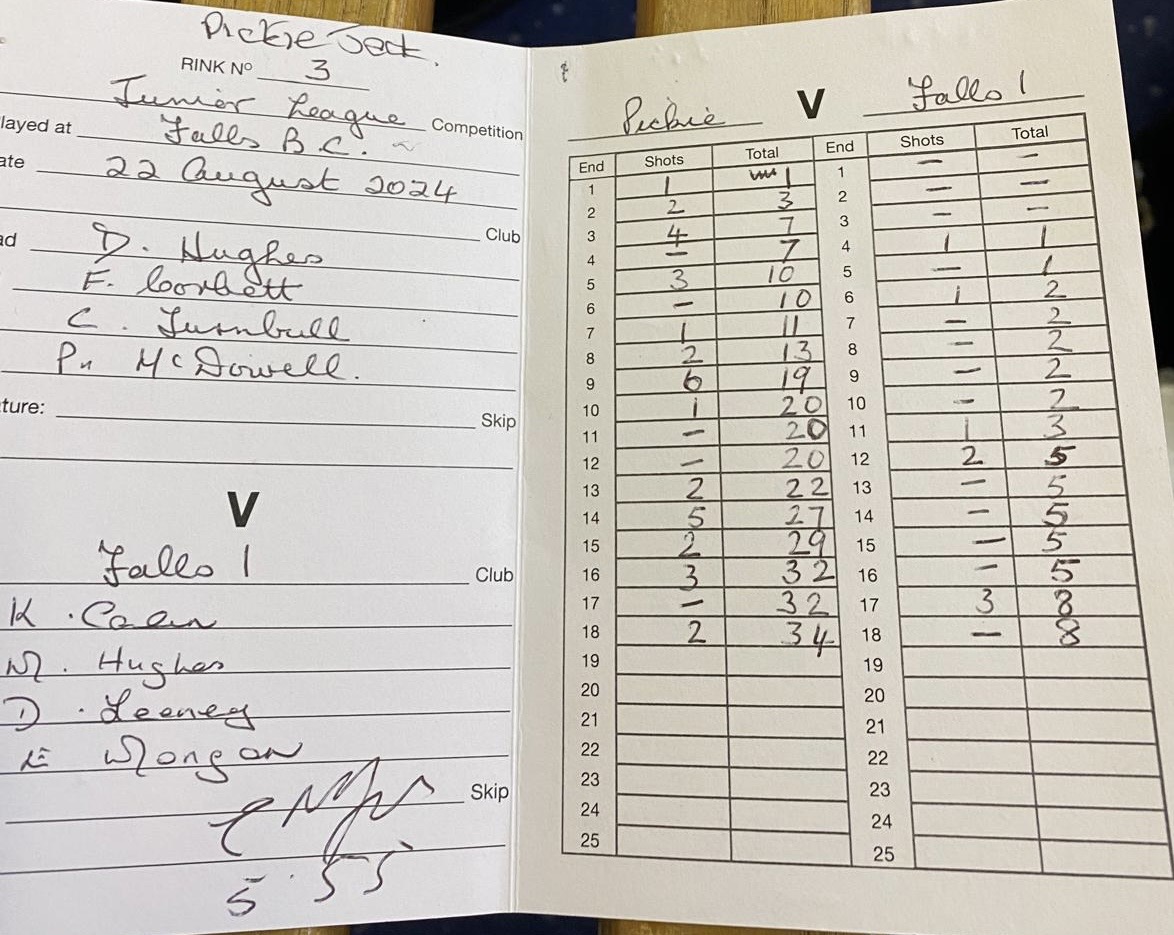 Pickie Sect.
RINK Nº 3
Junior League Competition
layed at Falls B.C.
ate 22 August 2024
Club
ad D. Hughes
F. Corbett
C. Turnbull
Pn McDowell.
ture: Skip
V
Falls 1 Club
K.
M. Hughes
D. Leeney
E Mongan
Skip
5.55
Pickie V Falls 1
End Shots Total End Shots Total
1 1 1 1 – –
2 2 3 2 – –
3 4 7 3 – –
4 – 7 4 1 1
5 3 10 5 – 1
6 – 10 6 1 2
7 1 11 7 – 2
8 2 13 8 – 2
9 6 19 9 – 2
10 1 20 10 – 2
11 – 20 11 1 3
12 – 20 12 2 5
13 2 22 13 – 5
14 5 27 14 – 5
15 2 29 15 – 5
16 3 32 16 – 5
17 – 32 17 3 8
18 2 34 18 – 8
19 19
20 20
21 21
22 22
23 23
24 24
25 25